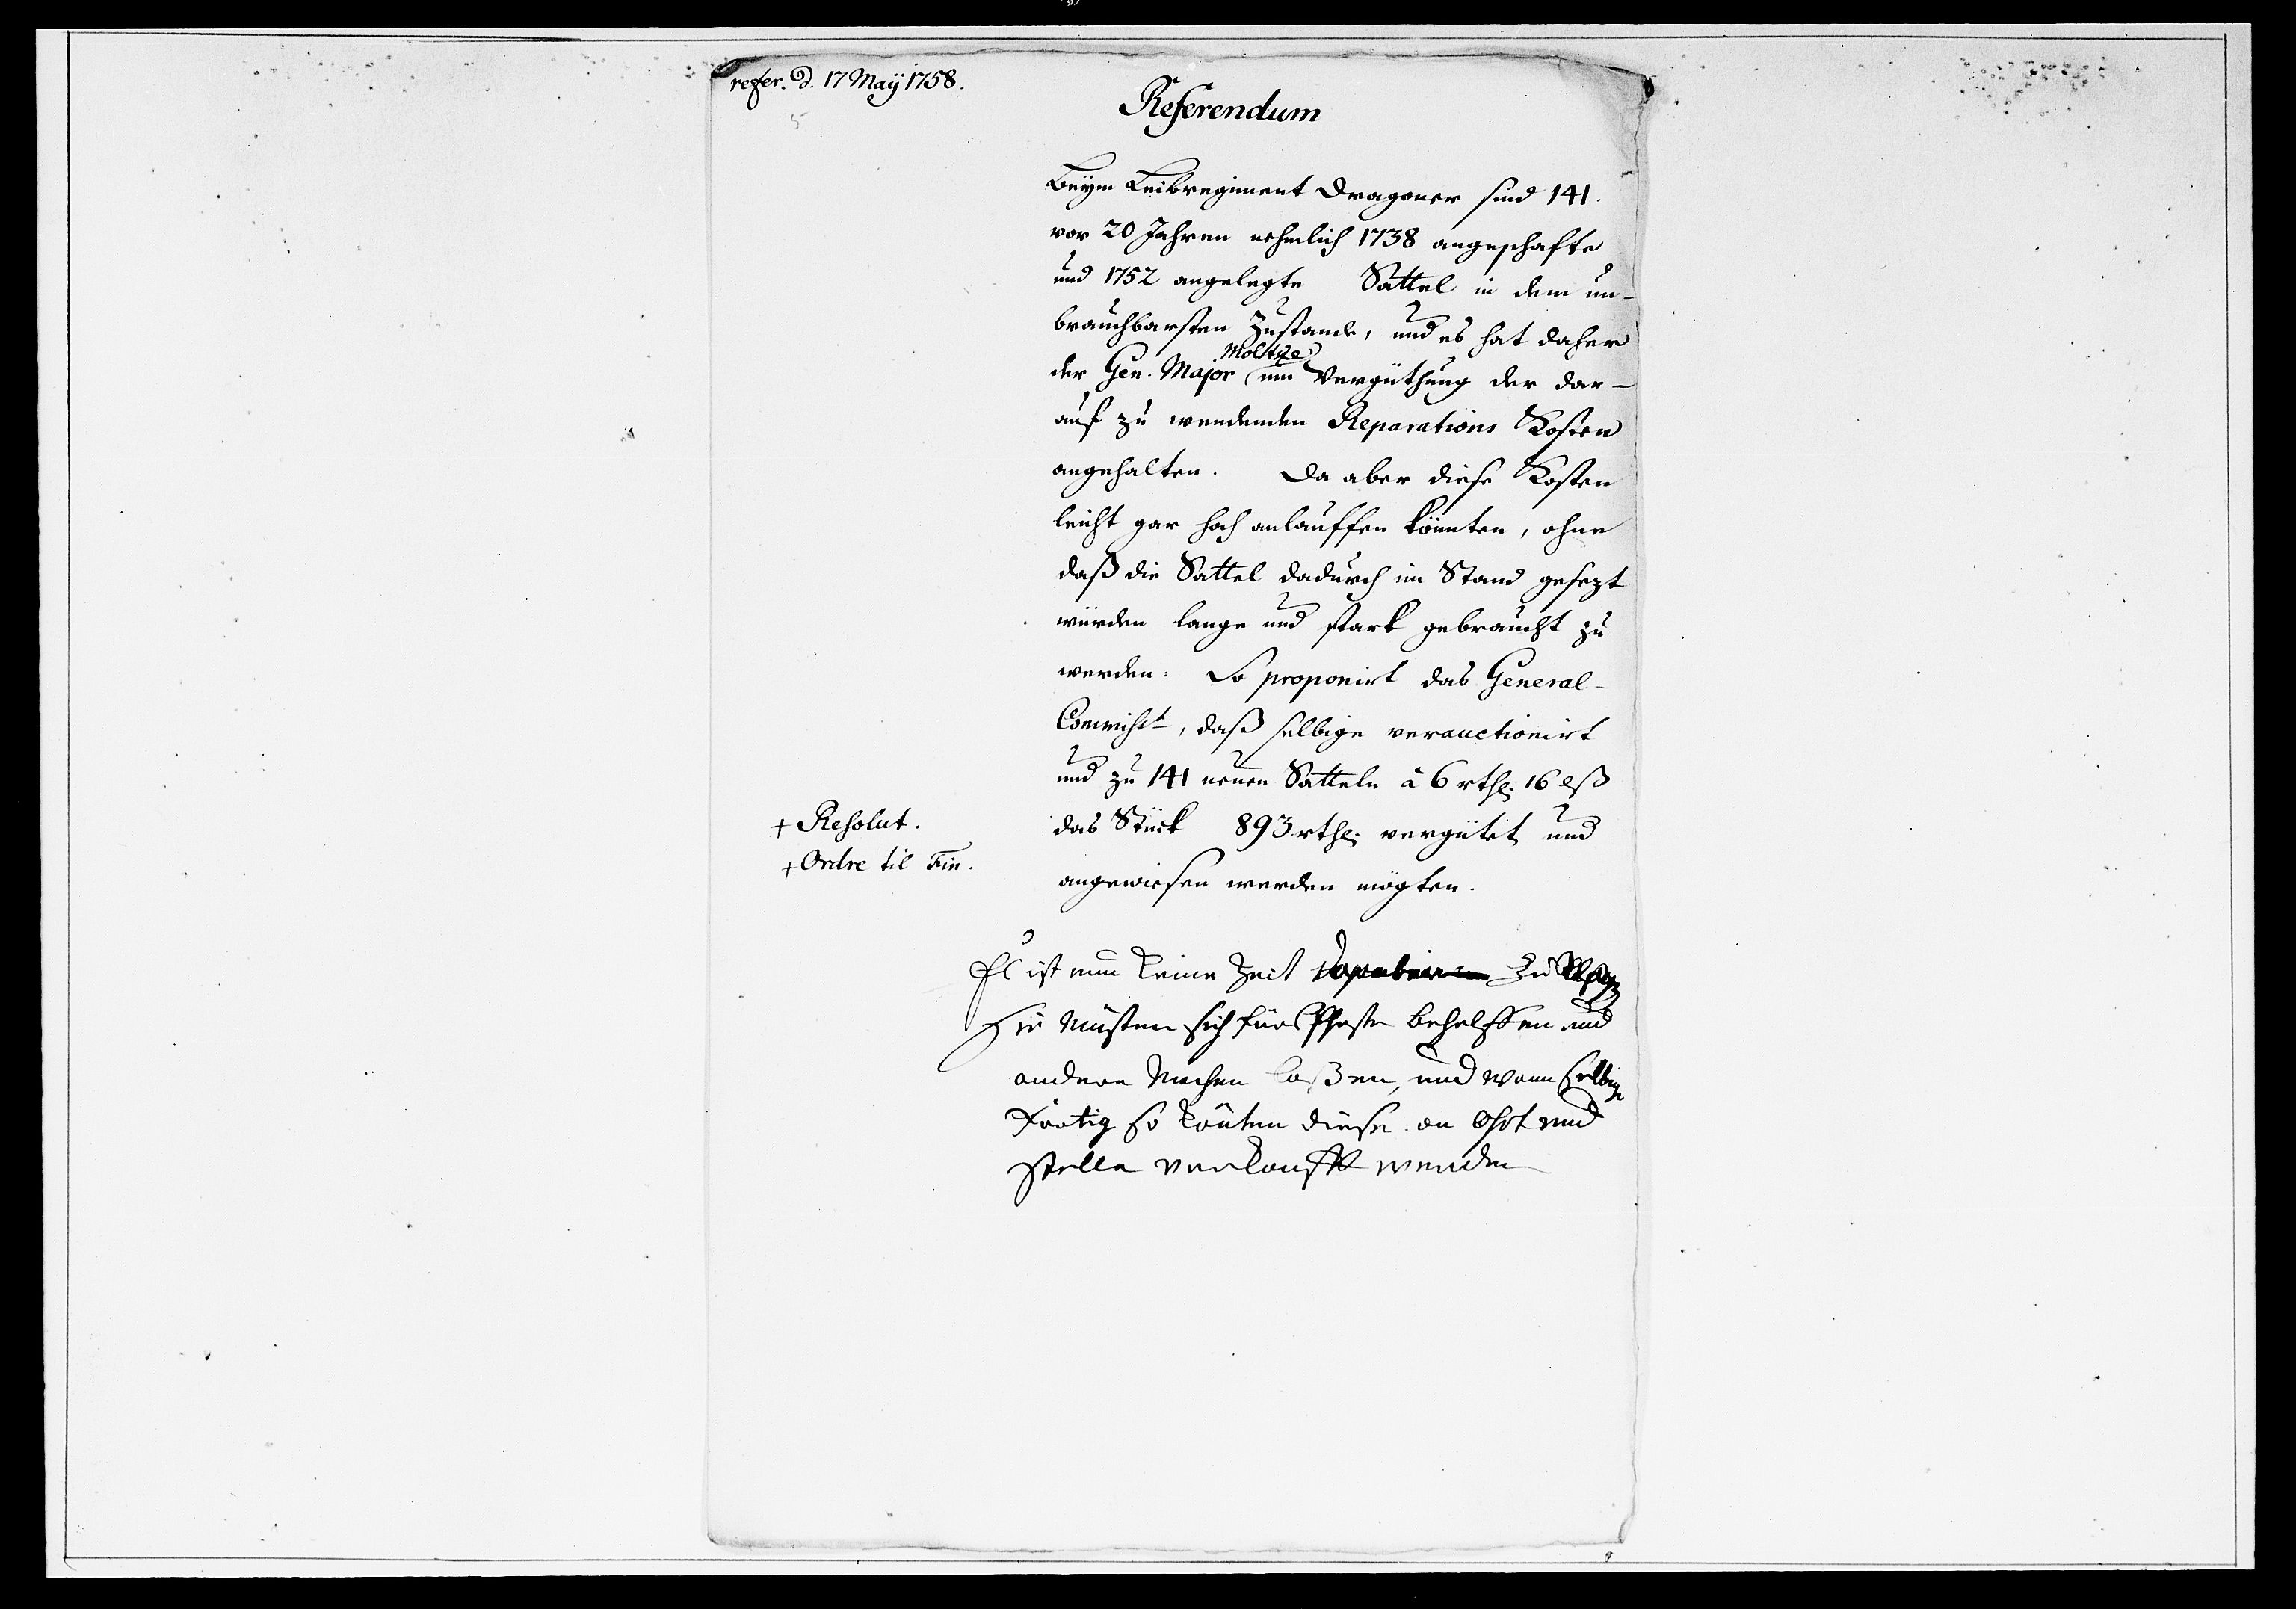 refer. d. 17 Maÿ 1758.
Referendum
Beÿm Leibregiment Dragoner sind 141.
vor 20 Jahren nehmlich 1738 angeschafte
und 1752 angelegte Sattel in dem un-
brauchbarsten Zustande, und es hat daher
Moltke
der Gen. Major um Vergüthung der dar-
auf zu wendenden Reparations Kosten
angehalten. Da aber diese Kosten
leicht gar hoch anlauffen könnten, ohne
daß die Sattel dadurch im Stand gesezt
würden lange und stark gebraucht zu
werden: So proponirt das General-
Commiss.t, daß selbige verauctionirt
und zu 141 neuen Satteln â 6 rthl. 16 lß
das Stück 893 rthl. vergütet und
angewiesen werden mögten.
+ Resolut.
+ Ordre til Fin.
Es ist nun keine Zeit zu
Sie müsten sich fürs behelffen und
andere machen laßen, und wann selbige
färtig so könten diese an Ohrt und
stelle verkaufft werden